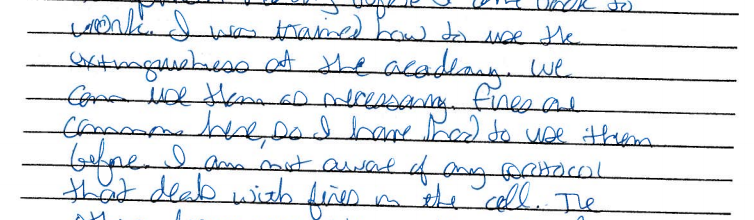 back to
work. I was trained how to use the
extinguishers at the academy. We
can use them as necessary. Fires are
common here, so I have had to use them
before. I am not aware of any protocol
that deals with fires in the cell. The